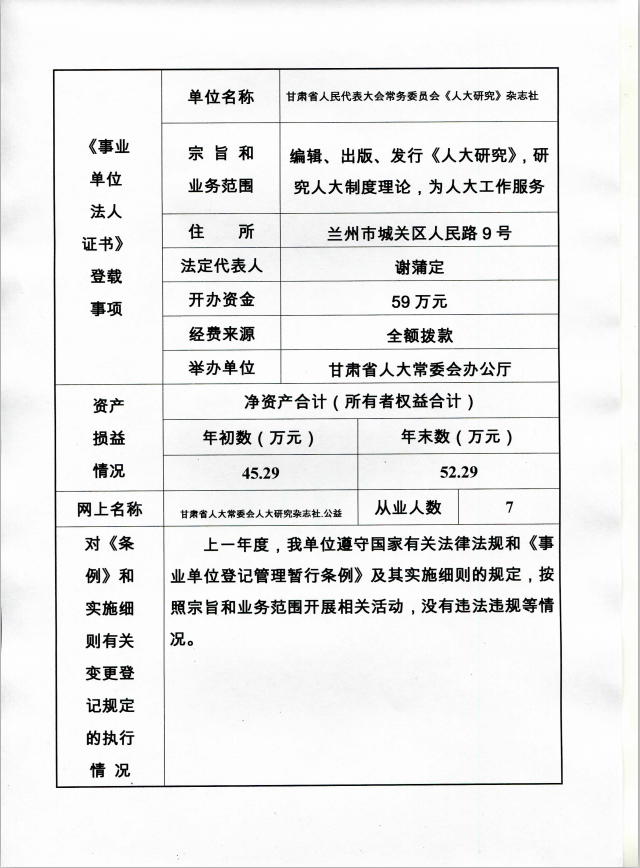 《事业
单位
法人
证书》
登载
事项
单位名称
甘肃省人民代表大会常务委员会《人大研究》杂志社
宗 旨 和
业务范围
编辑、出版、发行《人大研究》，研
究人大制度理论，为人大工作服务
住 所
兰州市城关区人民路9号
法定代表人
谢蒲定
开办资金
59万元
经费来源
全额拨款
举办单位
甘肃省人大常委会办公厅
资产
损益
情况
净资产合计（所有者权益合计）
年初数（万元）
年末数（万元）
45.29
52.29
网上名称
甘肃省人大常委会人大研究杂志社.公益
从业人数
7
对《条
例》和
实施细
则有关
变更登
记规定
的执行
情 况
上一年度，我单位遵守国家有关法律法规和《事
业单位登记管理暂行条例》及其实施细则的规定，按
照宗旨和业务范围开展相关活动，没有违法违规等情
况。